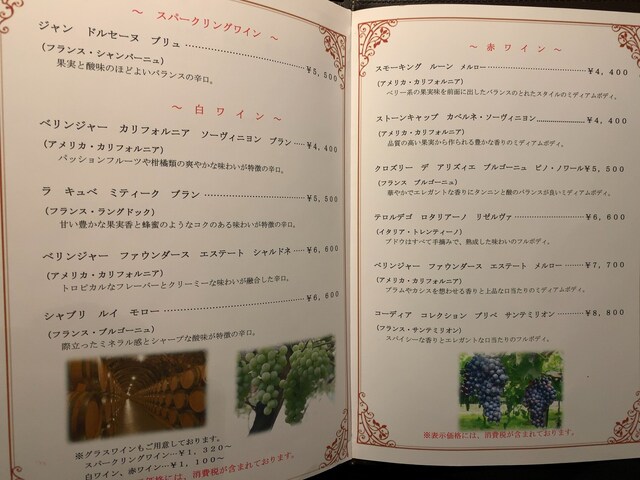 ～ スパークリングワイン ～
ジャン ドルセーヌ ブリュ ………………………… ￥5,500
(フランス・シャンパーニュ)
果実と酸味のほどよいバランスの辛口。
～ 白 ワ イ ン ～
ベリンジャー カリフォルニア ソーヴィニヨン ブラン ……￥4,400
(アメリカ・カリフォルニア)
パッションフルーツや柑橘類の爽やかな味わいが特徴の辛口。
ラ キュベ ミティーク ブラン ………………………￥5,500
(フランス・ラングドック)
甘い豊かな果実香と蜂蜜のようなコクのある味わいが特徴の辛口。
ベリンジャー ファウンダース エステート シャルドネ ……￥6,600
(アメリカ・カリフォルニア)
トロピカルなフレーバーとクリーミーな味わいが融合した辛口。
シャブリ ルイ モロー ………………………………￥6,600
(フランス・ブルゴーニュ)
際立ったミネラル感とシャープな酸味が特徴の辛口。
※グラスワインもご用意しております。
スパークリングワイン…￥1, 320～
白ワイン、赤ワイン…￥1, 100～
価格には、消費税が含まれております。
～ 赤 ワ イ ン ～
スモーキング ルーン メルロー ………………………￥4,400
(アメリカ・カリフォルニア)
ベリー系の果実味を前面に出したバランスのとれたスタイルのミディアムボディ。
ストーンキャップ カベルネ・ソーヴィニヨン ……………￥4,400
(アメリカ・カリフォルニア)
品質の高い果実から作られる豊かな香りのミディアムボディ。
クロズリー デ アリズィエ ブルゴーニュ ピノ・ノワール￥5,500
(フランス ブルゴーニュ)
華やかでエレガントな香りにタンニンと酸のバランスが良いミディアムボディ。
テロルデゴ ロタリアーノ リゼルヴァ …………………￥6,600
(イタリア・トレンティーノ)
ブドウはすべて手摘みで、熟成した味わいのフルボディ。
ベリンジャー ファウンダース エステート メルロー ………￥7,700
(アメリカ・カリフォルニア)
プラムやカシスを想わせる香りと上品な口当たりのミディアムボディ。
コーディア コレクション プリベ サンテミリオン …………￥8,800
(フランス・サンテミリオン)
スパイシーな香りとエレガントな口当たりのフルボディ。
※表示価格には、消費税が含まれております。